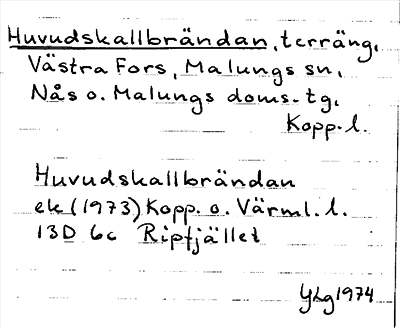 Huvudskallbrändan, terräng,
Västra Fors, Malungs sn,
Nås o. Malungs doms. tg,
Kopp. l.
Huvudskallbrändan
ek (1973) Kopp. o. Värml. l.
13D 6c Ripfjället
YLg 1974